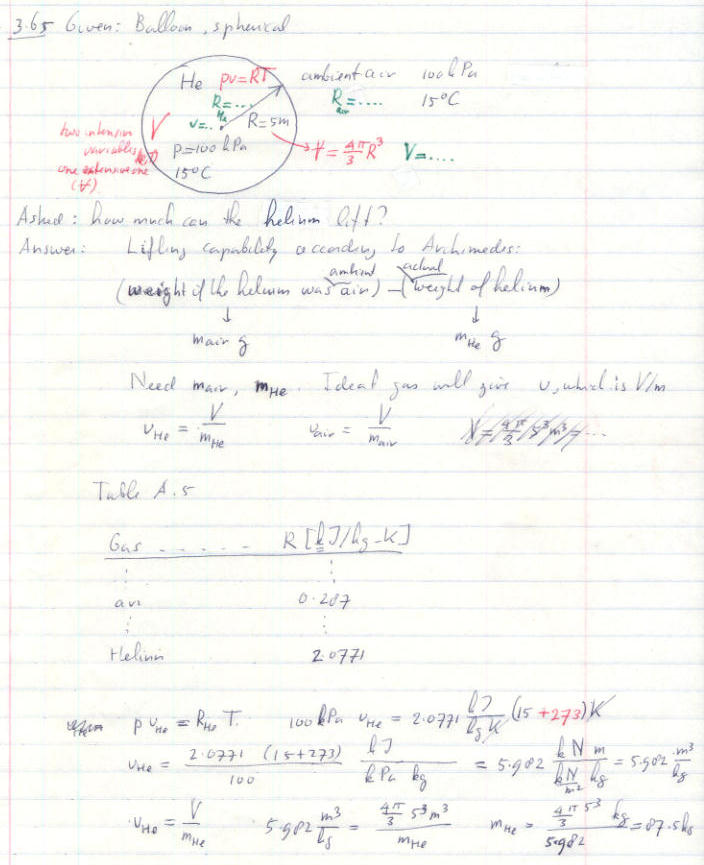 3.65 Given: Balloon, spherical
He pv=RT ambient air 100kPa
R=.... R_air=.... 15°C
v_He=.. R=5m
two intensive variables
one extensive one (V).
V
p=100 kPa V = 4π/3 R³ V=....
15°C
Asked: how much can the helium lift?
Answer: Lifting capability according to Archimedes:
ambient actual
(weight if the helium was air) - (weight of helium)
↓ ↓
m_air g m_He g
Need m_air, m_He. Ideal gas will give v, which is V/m
v_He = V/m_He v_air = V/m_air V = 4π/3 5³ m³ = ...
Table A.5
Gas ...... R [kJ/kg-K]
⋮ ⋮
air 0.287
⋮ ⋮
Helium 2.0771
p v_He = R_He T. 100 kPa v_He = 2.0771 kJ/kg K (15 +273) K
v_He = 2.0771 (15+273)/100 kJ/kPa kg = 5.982 kN m/(kN/m² kg) = 5.982 m³/kg
v_He = V/m_He 5.982 m³/kg = (4π/3 5³ m³)/m_He m_He = (4π/3 5³)/5.982 kg = 87.5kg